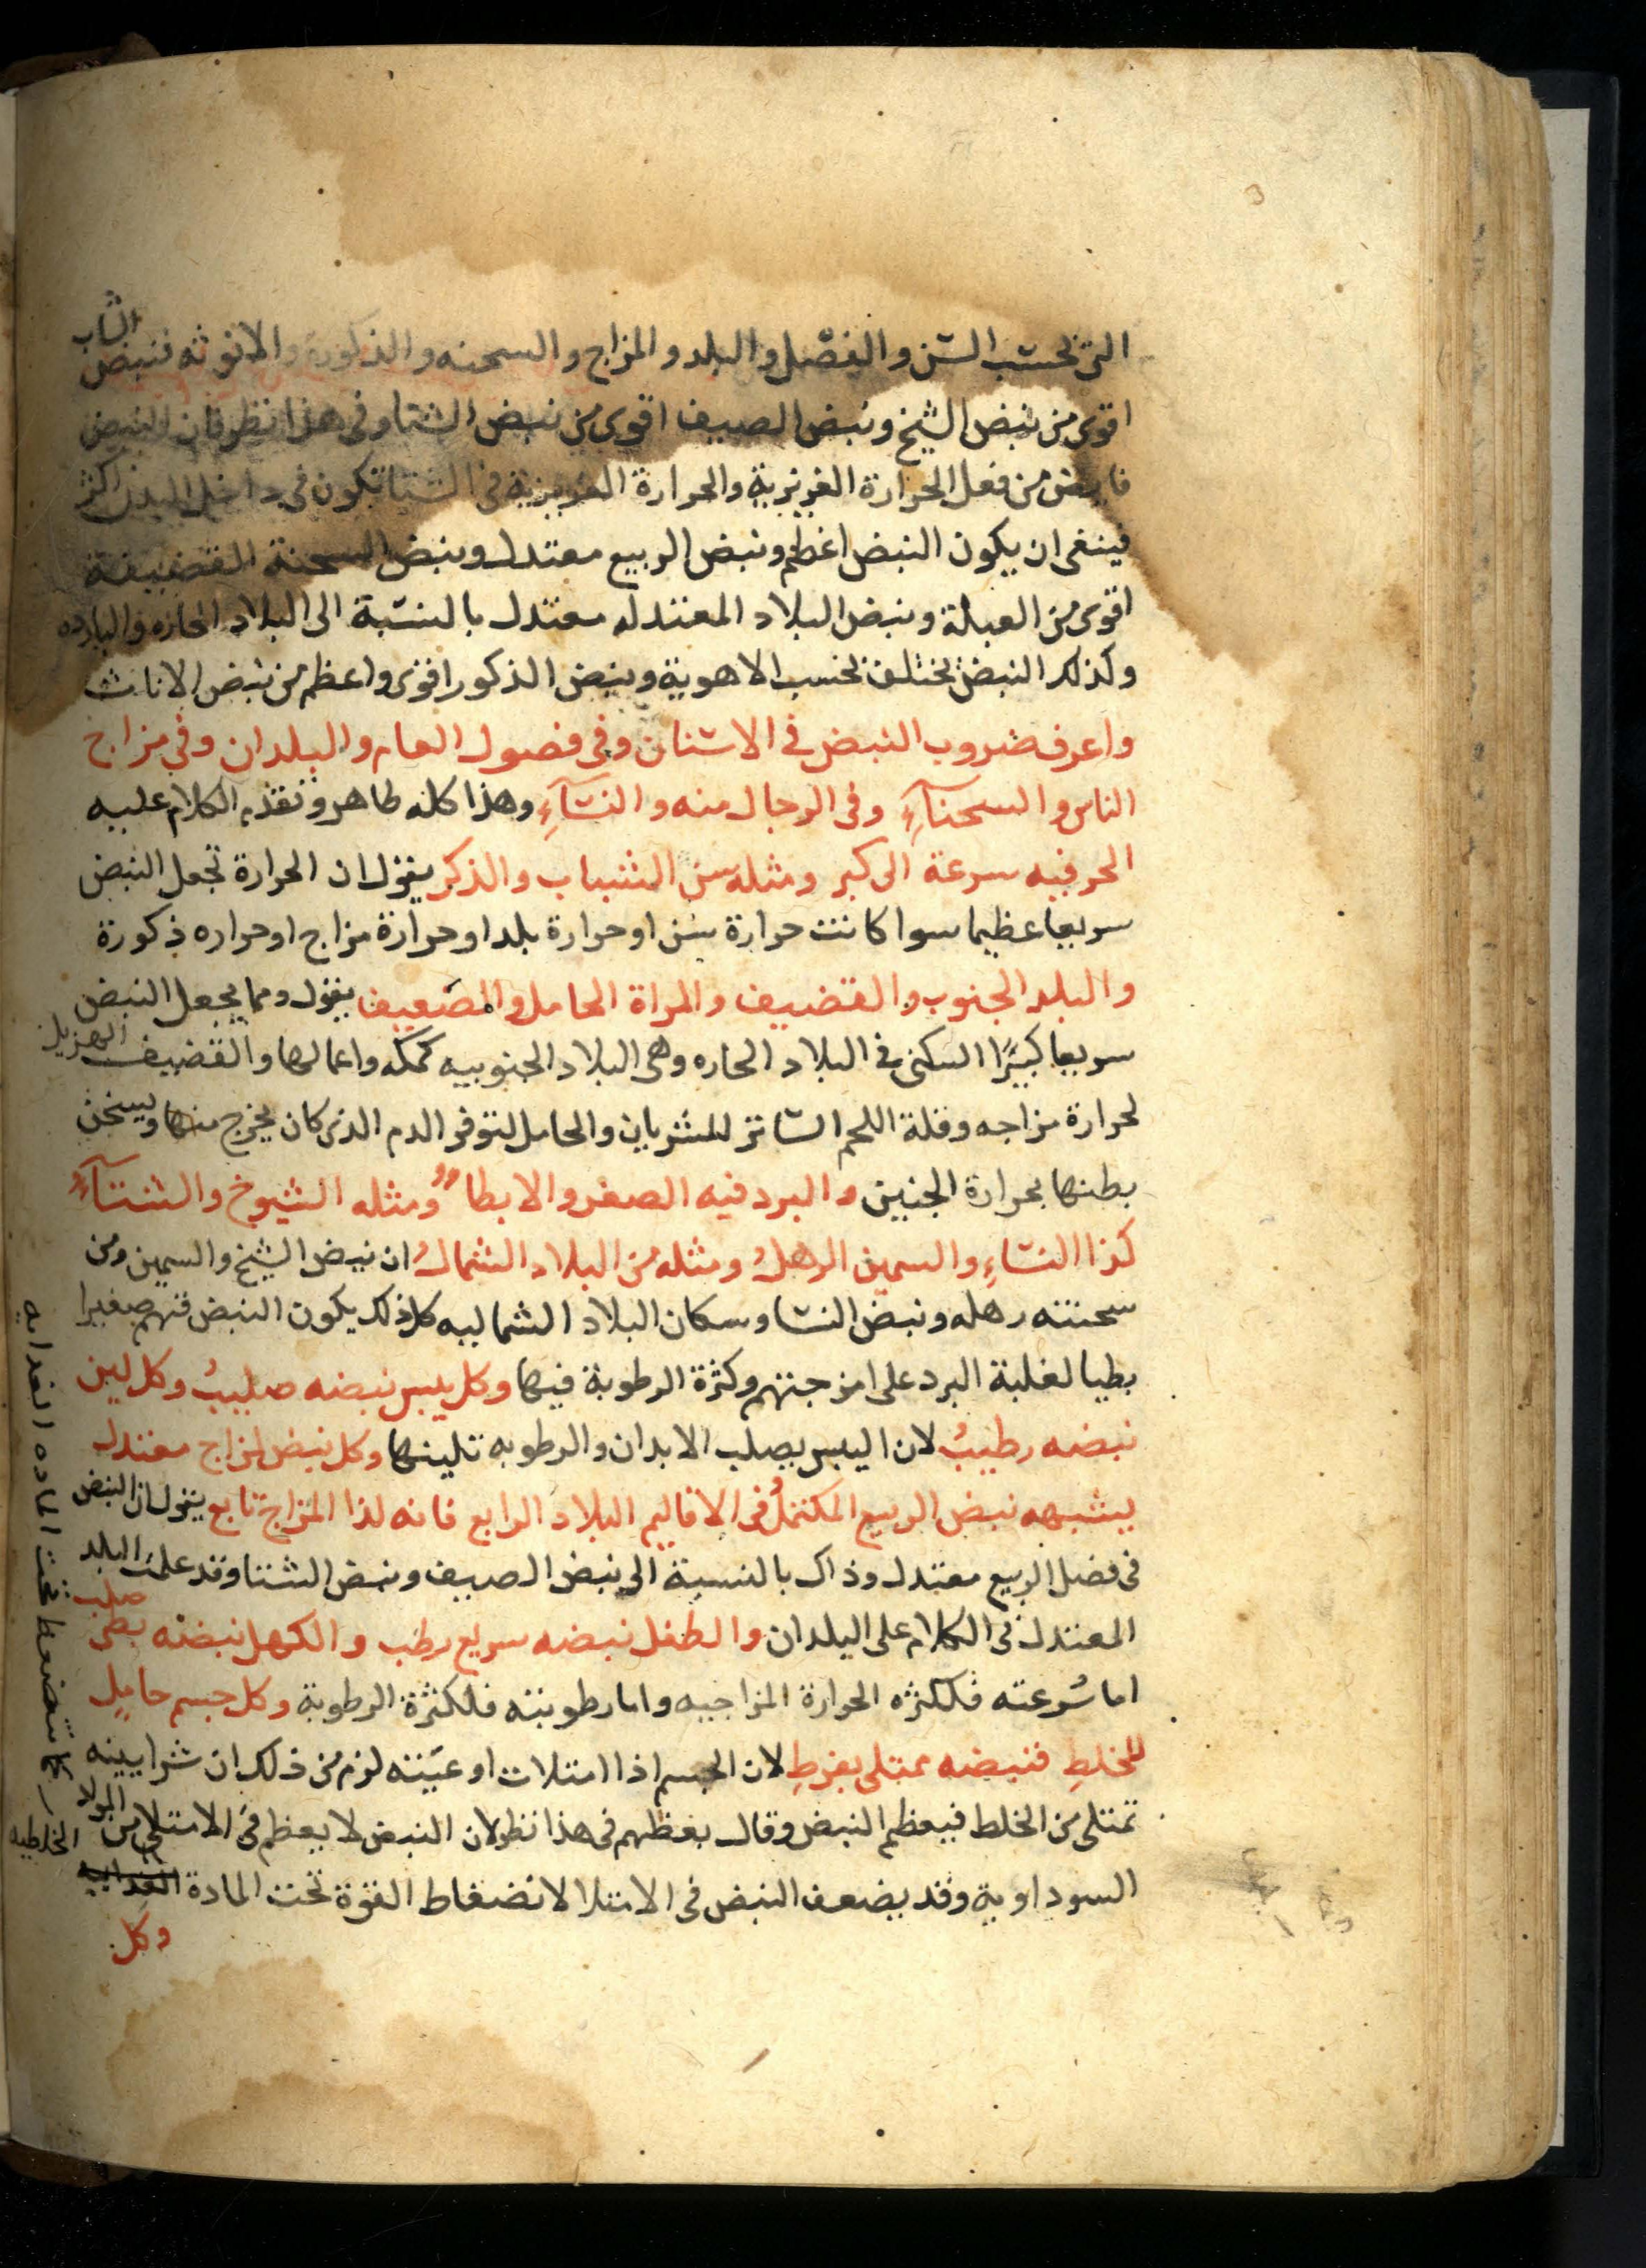 التى بحسب السن والفصل والبلد والمزاج والسحنه والذكورة والانوثه فنبض الشاب
اقوى من نبض الشيخ ونبض الصيف اقوى من نبض الشتا وفى هذا نظر فان النبض
من فعل الحرارة الغريزية والحرارة الغريزية فى الشتا تكون فى داخل البدن اكثر
فينغى ان يكون النبض اعظم ونبض الربيع معتدل ونبض السحنة القضيفة
اقوى من العبلة ونبض البلاد المعتدله معتدل بالنسبة الى البلاد الحاره والبارده
وكذلك النبض يختلف بحسب الاهوية ونبض الذكور اقوى واعظم من نبض الاناث
واعرف ضروب النبض فى الاسنان وفى فصول العام والبلدان وفى مزاج
الناس والسحنآءِ وفى الرجال منه والنسآءِ وهذا كله ظاهر وتقدم الكلام عليه
الحر فيه سرعة الى كبر ومثله سن الشباب والذكر يقول ان الحرارة تجعل النبض
سريعا عظيما سوا كانت حرارة سن او حرارة بلد او حرارة مزاج او حراره ذكورة
والبلد الجنوب والقضيف والمراة الحامل والمصيف يقول ومما يجعل النبض
سريعا كبيرًا السكنى فى البلاد الحاره وهى البلاد الجنوبيه كمكه واعمالها والقضيف الهزيل
لحرارة مزاجه وقلة اللحم الساتر للشريان والحامل لتوفر الدم الذى كان يخرج منها ويسخن
بطنها بحرارة الجنين والبرد فيه الصغر والابطاءُ ومثله الشيوخ والشتآءُ
كذا النساءِ والسمين الرهلُ ومثله من البلاد الشمالُ ان نبض الشيخ والسمين ومن
سحنته رهله ونبض النسا وسكان البلاد الشماليه كل ذلك يكون النبض فيهم صغيرا
بطيا لغلبة البرد على امزجتهم وكثرة الرطوبة فيها وكل يبس نبضه صليبُ وكل لين
نبضه رطيبُ لان اليبس يصلب الابدان والرطوبه تلينها وكل نبض لمزاج معتدل
يشبهه نبض الربيع المكتملُ فى الاقاليم البلاد الرابع فانه لذا المزاج تابع يقول ان النبض
فى فصل الربيع معتدل وذاك بالنسبة الى نبض الصيف ونبض الشتا وقد علمت البلد
المعتدل فى الكلام على البلدان والطفل نبضه سريع رطب والكهل نبضه بطى صلب
اما سُرعته فلكثره الحرارة المزاجيه واما رطوبته فلكثرة الرطوبة وكل جسم حاملِ
للخلطِ فنبضه ممتلى بفرطِ لان الجسم اذا امتلات اوعيَته لزم من ذلك ان شرايينه
تمتلى من الخلط فيعظم النبض وقال بعظهم فى هذا نظر لان النبض لا يعظم فى الامتلى من
السوداوية وقد يضعف النبض فى الامتلا لانضغاط القوة تحت المادة الغدائيه الخلطيه
كما تنضغط تحت الماده الغدائيه
وكل